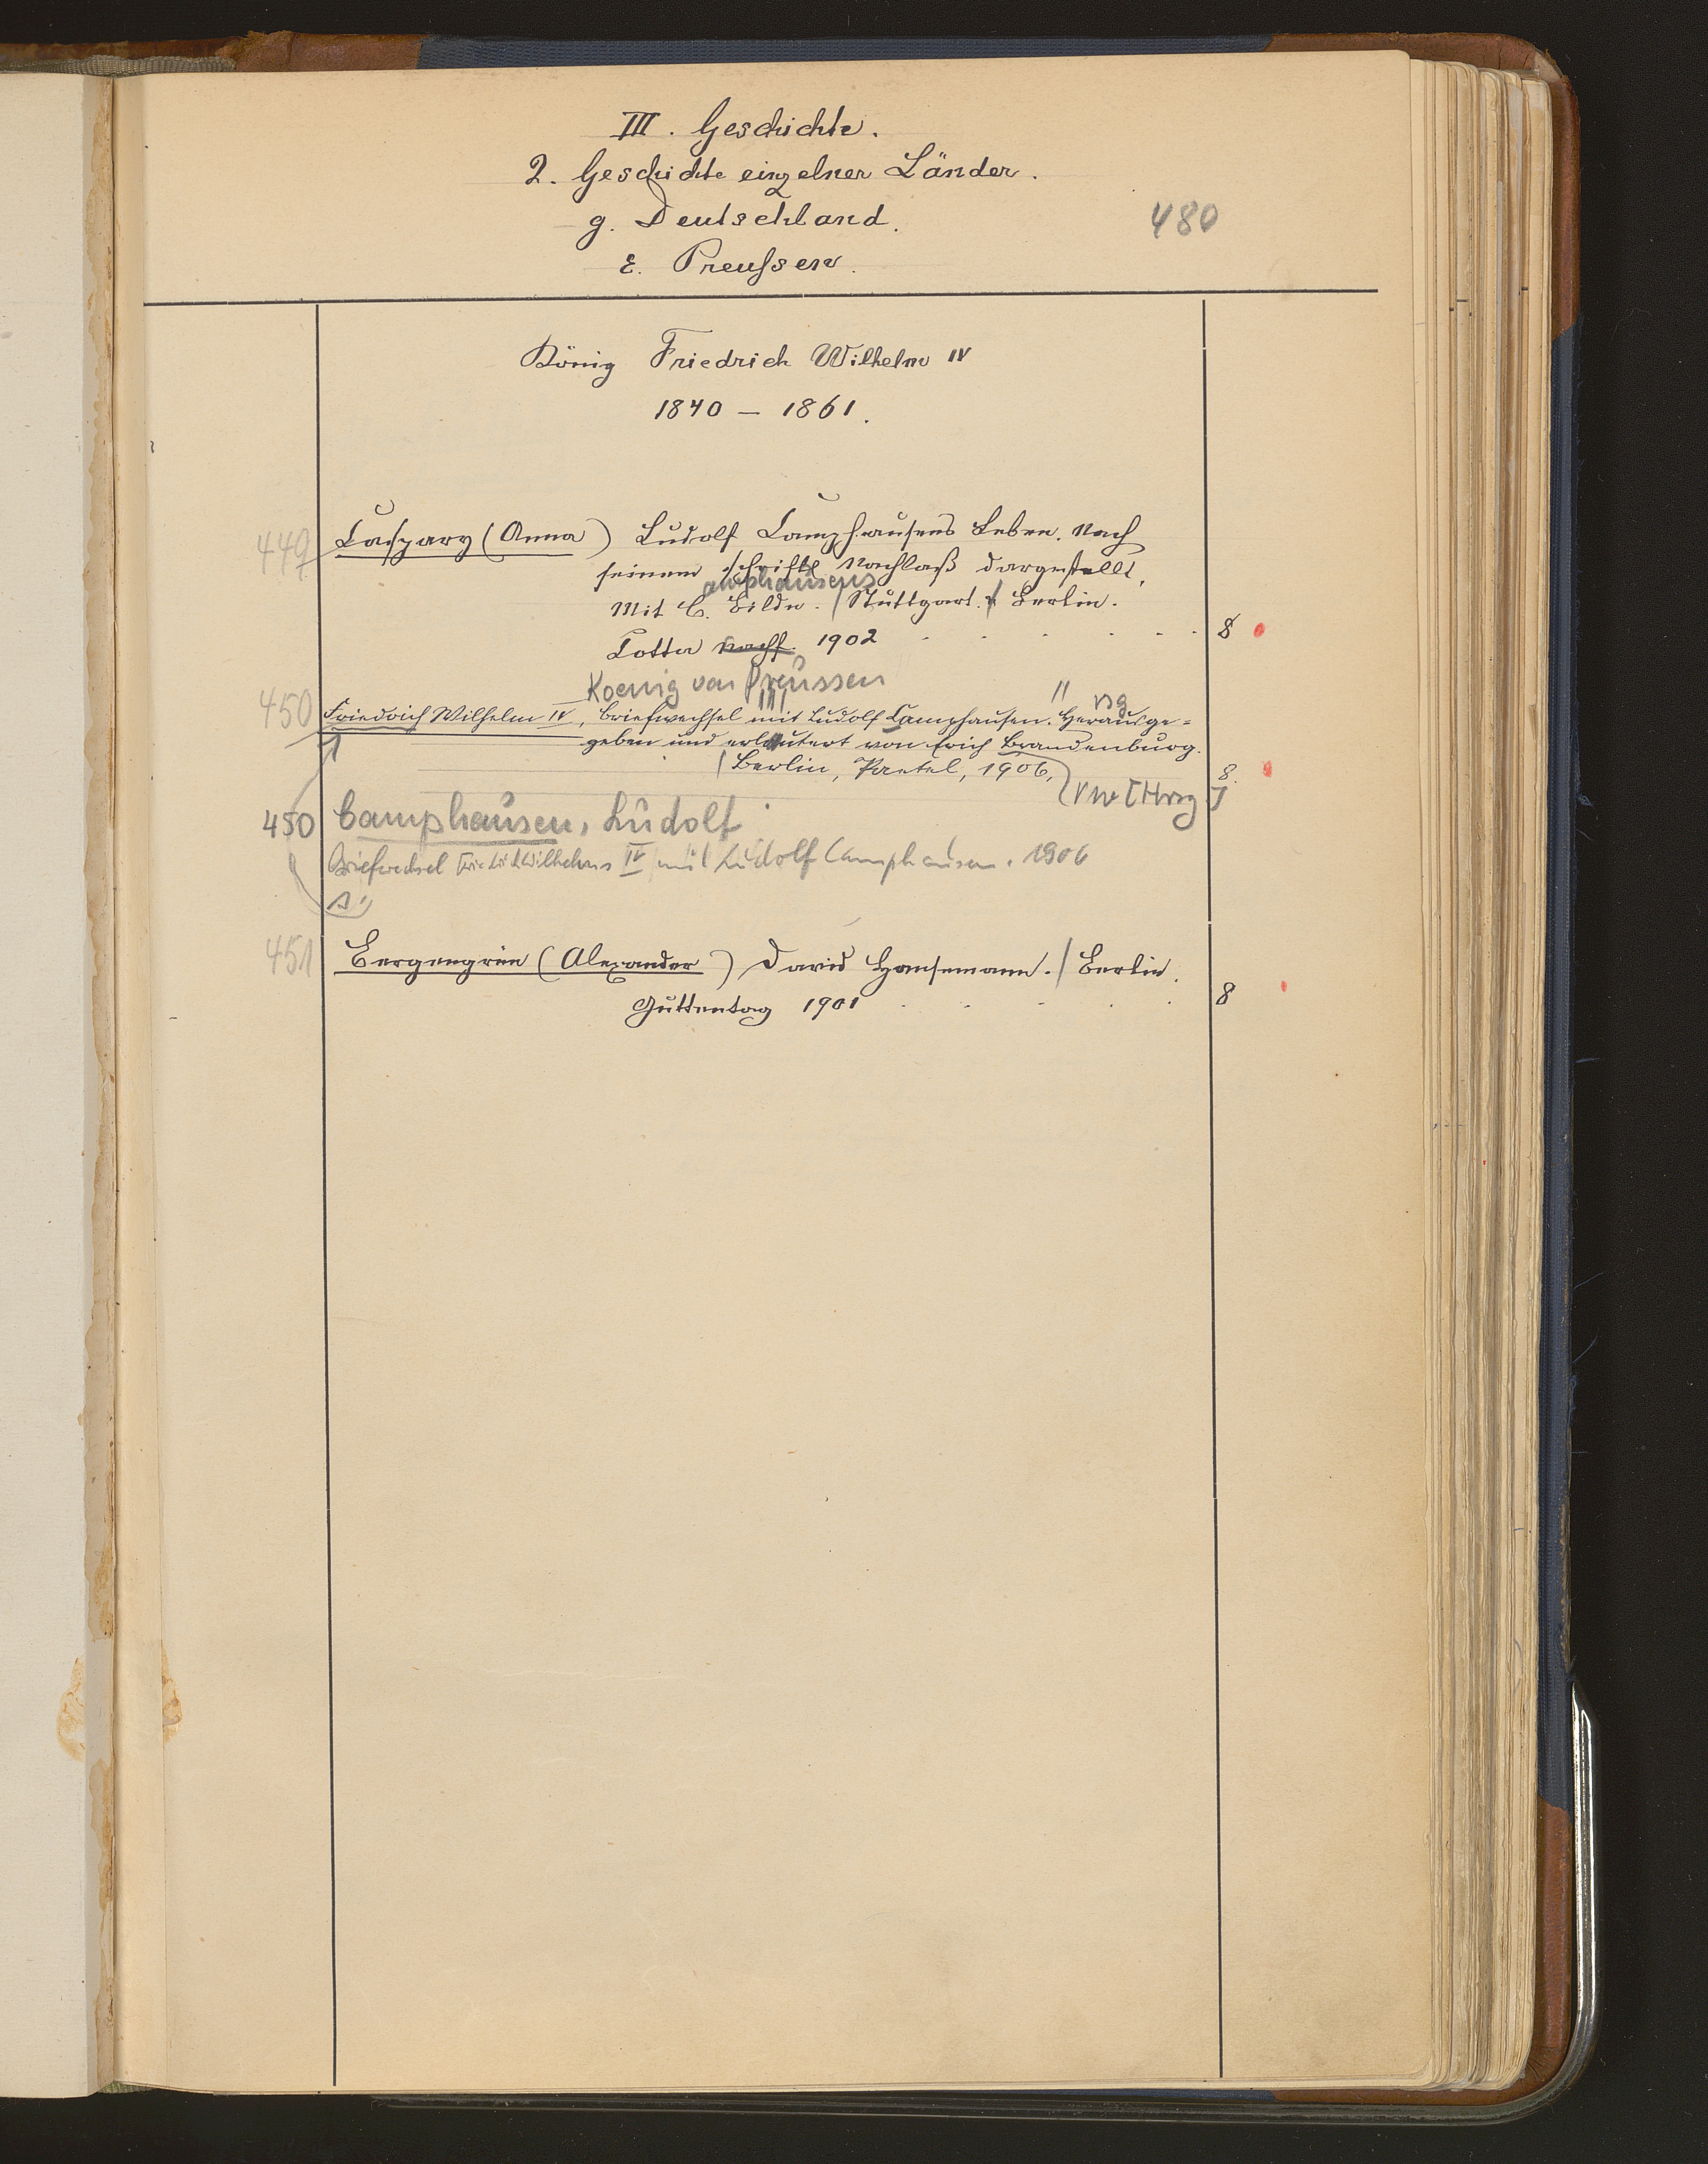 III. Geschichte.
2. Geschichte einzelner Länder.
g. Deutschland.
480
ε. Preußen.
König Friedrich Wilhelm IV
1840 – 1861.
449 Caspary (Anna) Ludolf Camphausens Leben. Nach
seinem schriftl Nachlaß dargestellt,
amphausens
Mit C. Bildn. / Stuttgart. Berlin.
Cotta Nachf. 1902 8
Koenig von Preussen
450 Friedrich Wilhelm IV, Briefwechsel mit Ludolf Camphausen. Herausge=
rsg
geben und erläutert von Erich Brandenburg.
Berlin, Paetel, 1906, 8.
Vw [Hrsg]
450 Camphausen, Ludolf
Briefwechsel Friedrich Wilhelms IV mit Ludolf Camphausen. 1906
s.
451 Bergengrün (Alexander) David Hansemann. / Berlin.
Guttentag 1901 8